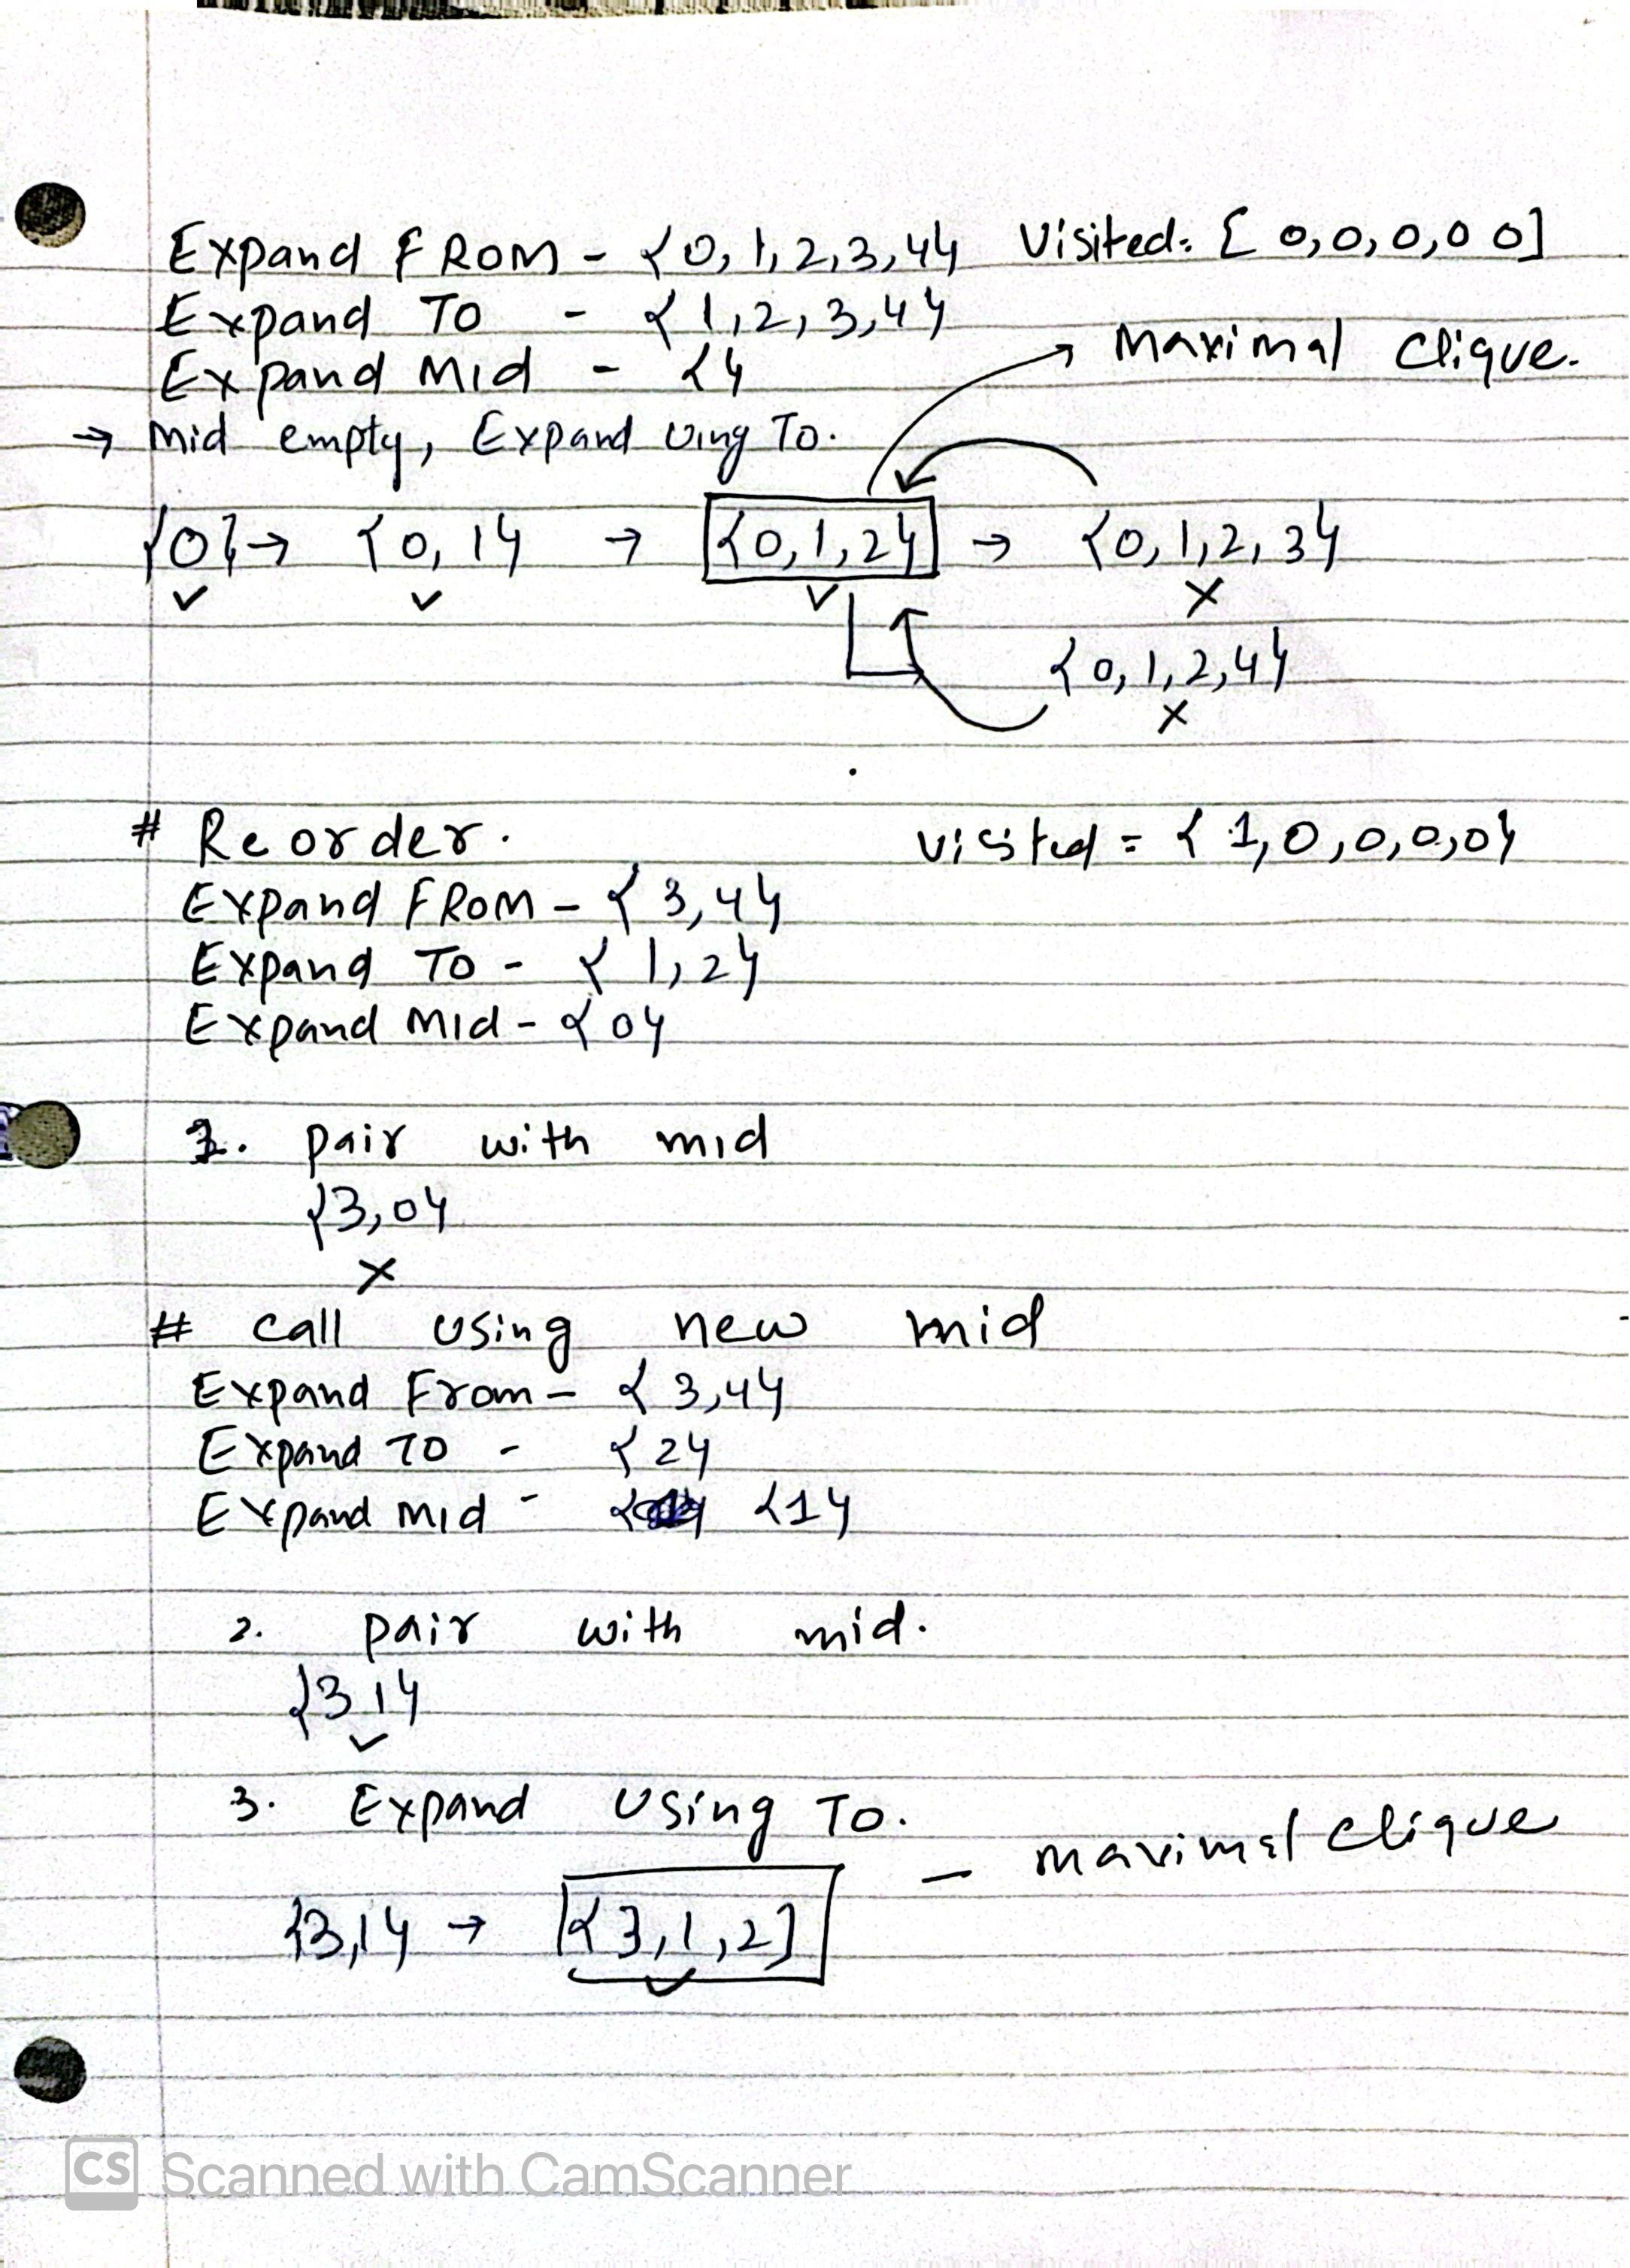 Expand FROM - {0,1,2,3,4} Visited: [0,0,0,0 0]
Expand TO - {1,2,3,4}
Expand Mid - {}
→ Maximal Clique.
→ Mid empty, Expand Uing To.
{0} → {0,1} → {0,1,2} → {0,1,2,3}
✓ ✓ ✓ ×
{0,1,2,4}
×
# Reorder. visited = {1,0,0,0,0}
Expand FROM - {3,4}
Expand TO - {1,2}
Expand Mid - {0}
1. pair with mid
{3,0}
×
# call using new mid
Expand From - {3,4}
Expand TO - {2}
Expand Mid - {1}
2. pair with mid.
{3 1}
✓
3. Expand Using To.
- maximal clique
{3,1} → {3,1,2}
✓
CS Scanned with CamScanner